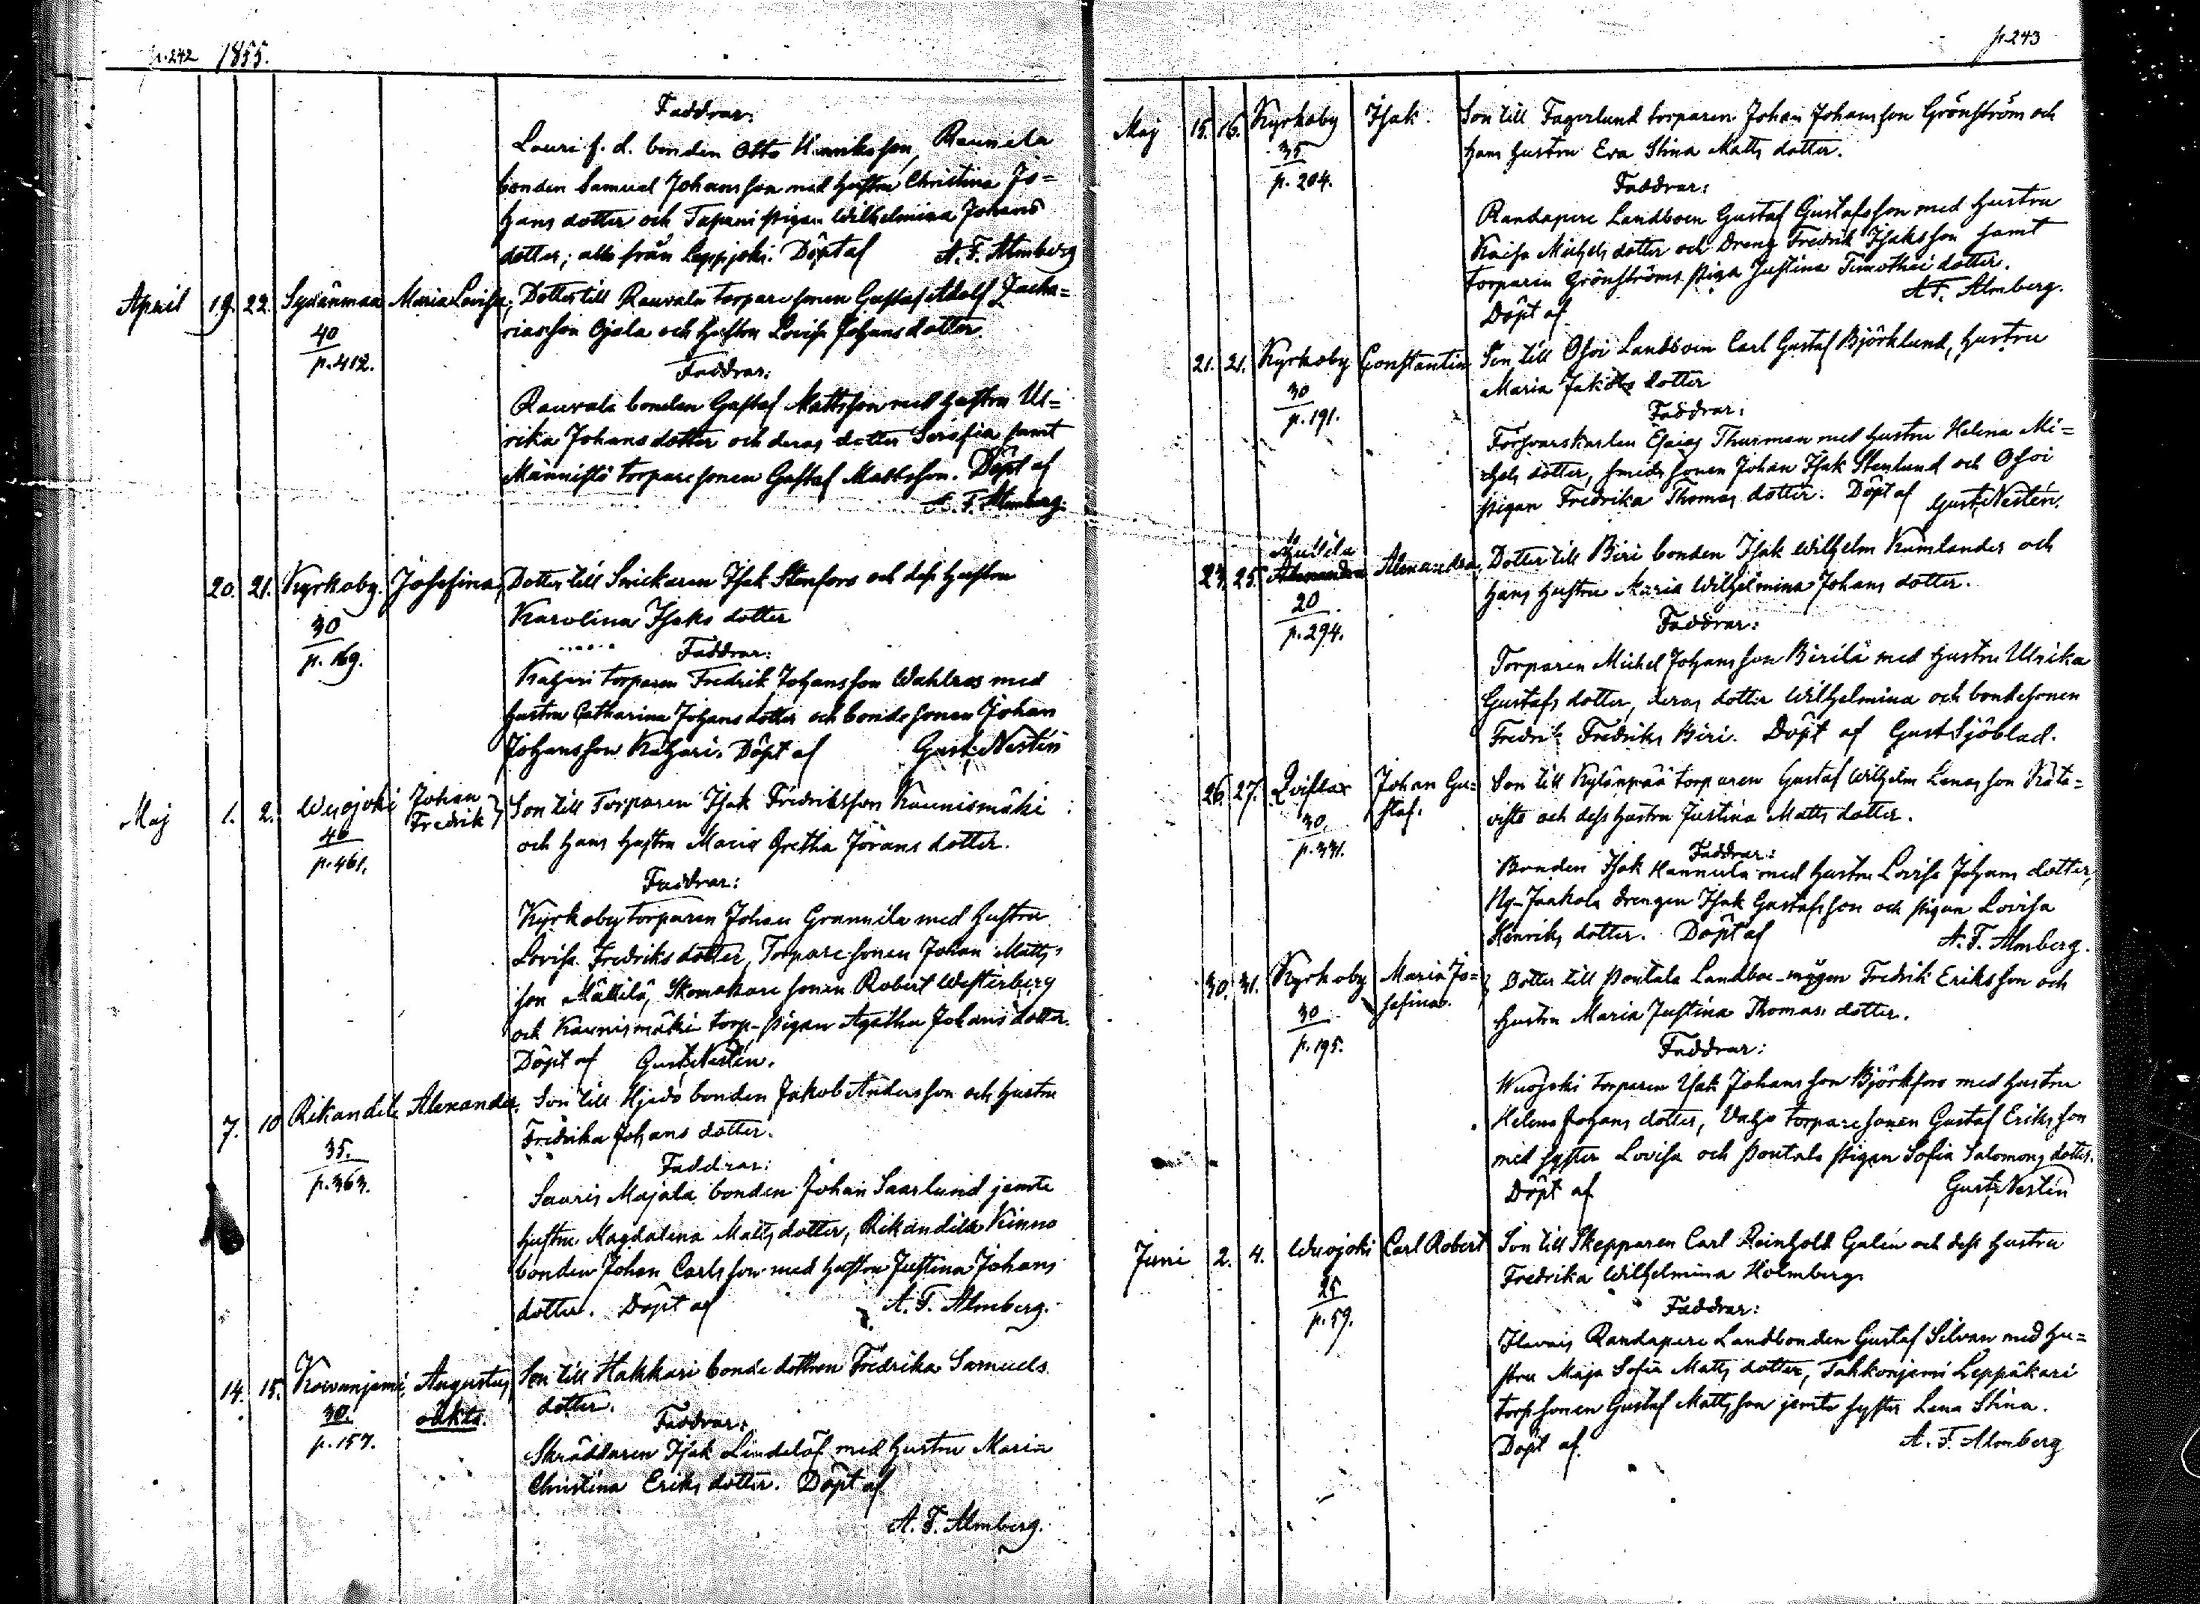 p.242 1855.
Faddrar:
Lauri f. d. bonden Otto Henriksson, Raunela
bonden Samuel Johansson med hustru Christina Jo=
hans dotter och Tapani pigan Wilhelmina Johans
dotter; alla från Leppjoki. Döpt af A. F. Almberg
April 19. 22. Sydänmaa Maria Lovisa, Dotter till Rauvala torpare sonen Gustaf Adolf Zacha=
40 riasson Ojala och hustru Lovisa Johans dotter.
p.412.
Faddrar:
Rauvala bonden Gustaf Mattsson med hustru Ul=
rika Johans dotter och deras dotter Serafia samt
Männistö torpare sonen Gustaf Mattsson. Döpt af
A. F. Almberg.
20. 21. Kyrkoby. Josefina, Dotter till Snickaren Isak Stenfors och dess hustru
30 Karolina Isaks dotter
p. 169.
Faddrar:
Kahari torparen Fredrik Johansson Wahlros med
hustru Catharina Johans dotter och bonde sonen Johan
Johansson Kahari. Döpt af Gust. Nestén
Maj 1. 2. Wuojoki Johan Fredrik } Son till Torparen Isak Fredriksson Kaunismäki
40 och hans hustru Maria Gretha Jörans dotter.
p.461.
Faddrar:
Kyrkoby torparen Johan Grannila med hustru
Lovisa Fredriks dotter, Torpare sonen Johan Matts=
son Mättilä, Skomakare sonen Robert Westerberg
och Kaunismäki torp-pigan Agatha Johans dotter.
Döpt af Gust. Nestén.
7. 10 Rikandila Alexander, Son till Hjedo bonden Jakob Andersson och hustru
35. Fredrika Johans dotter.
p.363.
Faddrar:
Sauris Majala bonden Johan Saarlund jemte
hustru Magdalena Matts dotter, Rikandila Kinno
bonden Johan Carlsson med hustru Justina Johans
dotter. Döpt af A. F. Almberg.
14. 15. Kaivunjemi, Augustus, Son till Hakkari bonde dottren Fredrika Samuels
30. oäkta. dotter.
p.157.
Faddrar:
Skräddaren Isak Lindelöf med hustru Maria
Christina Eriks dotter. Döpt af
A. F. Almberg.
p.243
Maj 15. 16. Kyrkoby Isak. Son till Fagerlund torparen Johan Johansson Grönström och
35 hans hustru Eva Stina Matts dotter.
p. 204.
Faddrar:
Randapere Landboen Gustaf Gustafsson med hustru
Kaisa Michels dotter och dreng Fredrik Isaksson samt
torparen Grönströms piga Justina Timothei dotter.
Döpt af A. F. Almberg.
21. 21. Kyrkoby Constantin Son till Ojoi Landboen Carl Gustaf Björklund, hustru
30 Maria Jakobs dotter
p. 191.
Faddrar:
Försvarskarlen Esaias Thurman med hustru Helena Mi=
chels dotter, smeds sonen Johan Isak Stenlund och Ojoi
pigan Fredrika Thomas dotter. Döpt af Gust. Nestén.
Mullila
23. 25. Alexandra, Dotter till Biri bonden Isak Wilhelm Kumlander och
20 hans hustru Maria Wilhelmina Johans dotter.
p.294.
Faddrar:
Torparen Michel Johansson Birilä med hustru Ulrika
Gustafs dotter, deras dotter Wilhelmina och bondesonen
Fredrik Fredriks Biri. Döpt af Gust. Sjöblad.
26. 27. Qviflax Johan Gu=staf. Son till Kylänpää torparen Gustaf Wilhelm Lenasson Kata=
30. visto och dess hustru Justina Matts dotter.
p.331.
Faddrar:
Bonden Isak Hannula med hustru Lovisa Johans dotter,
Ny-Jaakola drengen Isak Gustafsson och pigan Lovisa
Henriks dotter. Döpt af A. F. Almberg.
30. 31. Kyrkoby Maria Jo=sefina. Dotter till Poutala Landboe-mågen Fredrik Eriksson och
30 hustru Maria Justina Thomas dotter.
p.195.
Faddrar:
Wuojoki torparen Isak Johansson Björkfors med hustru
Helena Johans dotter, Vahjo torpare sonen Gustaf Eriksson
med syster Lovisa och Poutala pigan Sofia Salomons dotter.
Döpt af Gust. Nestén
Juni 2. 4. Wuojoki Carl Robert Son till Skepparen Carl Reinhold Galén och dess hustru
25 Fredrika Wilhelmina Holmberg.
p.59.
Faddrar:
Ilavais Randapere Landbonden Gustaf Silvan med hu=
stru Maja Sofia Matts dotter, Tahkonjemi Leppäkari
torpsonen Gustaf Mattsson jemte syster Lena Stina.
Döpt af. A. F. Almberg